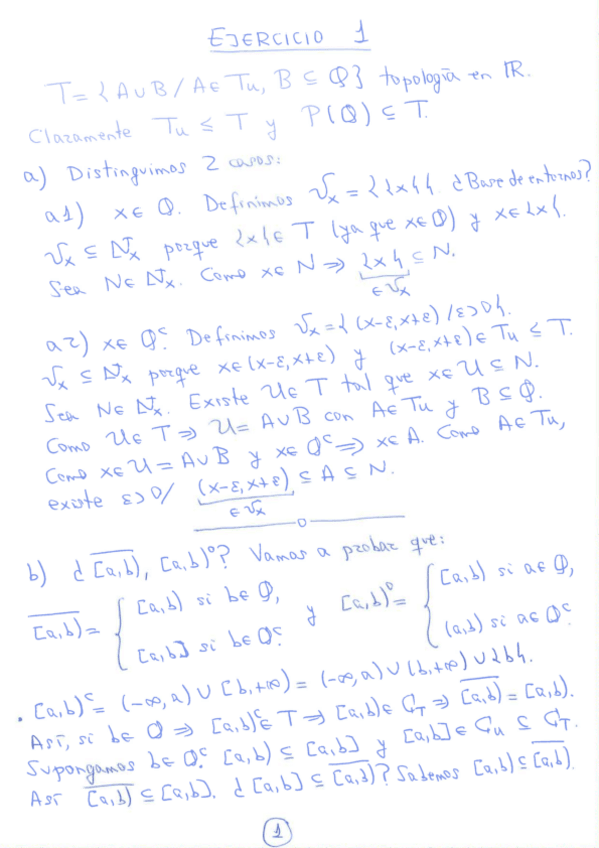 EJERCICIO 1
T = { A∪B / A∈ Tu, B ⊆ ℚ } topología en ℝ.
Claramente Tu ≤ T y P(ℚ) ⊆ T.
a) Distinguimos 2 casos:
a1) x∈ ℚ. Definimos 𝒱x = {{x}}. ¿Base de entornos?
𝒱x ⊆ 𝒩x porque {x}∈ T (ya que x∈ℚ) y x∈{x}.
Sea N∈ 𝒩x. Como x∈ N ⇒ {x} ⊆ N.
∈ 𝒱x
a2) x∈ ℚᶜ. Definimos 𝒱x = { (x-ε, x+ε) / ε>0 }.
𝒱x ⊆ 𝒩x porque x∈ (x-ε, x+ε) y (x-ε, x+ε) ∈ Tu ≤ T.
Sea N∈ 𝒩x. Existe U∈ T tal que x∈ U ⊆ N.
Como U∈ T ⇒ U = A∪B con A∈ Tu y B ⊆ ℚ.
Como x∈ U = A∪B y x∈ ℚᶜ ⇒ x∈ A. Como A∈ Tu,
existe ε>0/ (x-ε, x+ε) ⊆ A ⊆ N.
∈ 𝒱x
b) ¿ \overline{[a,b)}, [a,b)°? Vamos a probar que:
\overline{[a,b)} = { [a,b) si b∈ ℚ, [a,b] si b∈ ℚᶜ. y [a,b)° = { [a,b) si a∈ ℚ, (a,b) si a∈ ℚᶜ.
· [a,b)ᶜ = (-∞,a) ∪ [b,+∞) = (-∞,a) ∪ (b,+∞) ∪ {b}.
Así, si b∈ ℚ ⇒ [a,b)ᶜ∈ T ⇒ [a,b)∈ C_T ⇒ \overline{[a,b)} = [a,b).
Supongamos b∈ ℚᶜ. [a,b) ⊆ [a,b] y [a,b]∈ Cu ⊆ C_T.
Así \overline{[a,b)} ⊆ [a,b]. ¿ [a,b] ⊆ \overline{[a,b)}? Sabemos [a,b) ⊆ \overline{[a,b)}.
1